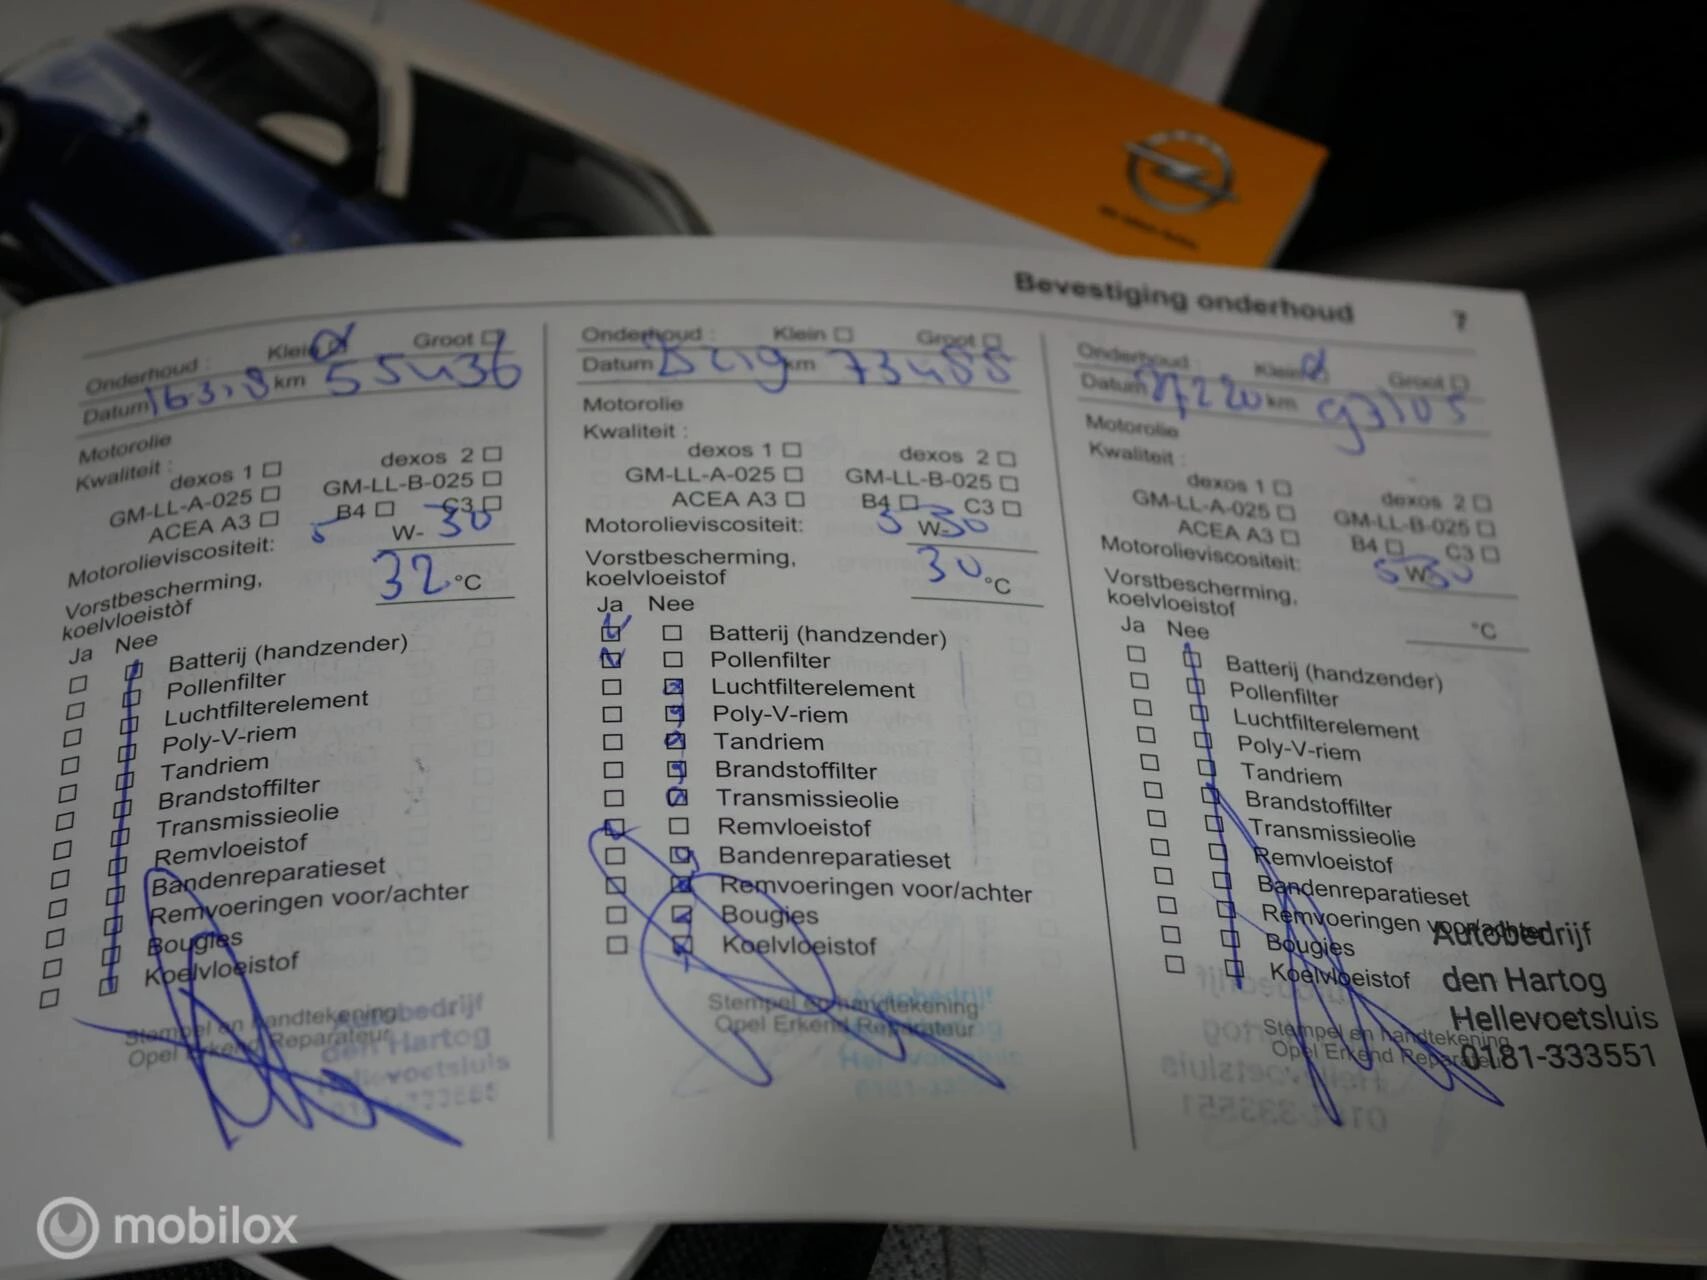 Bevestiging onderhoud 7
Onderhoud : Klein Groot
Datum 16 3 18 km 55436
Motorolie
Kwaliteit :
dexos 1 dexos 2
GM-LL-A-025 GM-LL-B-025
ACEA A3 B4 C3
Motorolieviscositeit: 5 W- 30
Vorstbescherming,
koelvloeistof 32 °C
Ja Nee
Batterij (handzender)
Pollenfilter
Luchtfilterelement
Poly-V-riem
Tandriem
Brandstoffilter
Transmissieolie
Remvloeistof
Bandenreparatieset
Remvoeringen voor/achter
Bougies
Koelvloeistof
Stempel en handtekening
Opel Erkend Reparateur
Autobedrijf
den Hartog
Hellevoetsluis
Onderhoud : Klein Groot
Datum km 73488
Motorolie
Kwaliteit :
dexos 1 dexos 2
GM-LL-A-025 GM-LL-B-025
ACEA A3 B4 C3
Motorolieviscositeit: 5 W- 30
Vorstbescherming,
koelvloeistof 30 °C
Ja Nee
Batterij (handzender)
Pollenfilter
Luchtfilterelement
Poly-V-riem
Tandriem
Brandstoffilter
Transmissieolie
Remvloeistof
Bandenreparatieset
Remvoeringen voor/achter
Bougies
Koelvloeistof
Stempel en handtekening
Opel Erkend Reparateur
Autobedrijf
Onderhoud : Klein Groot
Datum km 93105
Motorolie
Kwaliteit :
dexos 1 dexos 2
GM-LL-A-025 GM-LL-B-025
ACEA A3 B4 C3
Motorolieviscositeit: 5 W- 30
Vorstbescherming,
koelvloeistof °C
Ja Nee
Batterij (handzender)
Pollenfilter
Luchtfilterelement
Poly-V-riem
Tandriem
Brandstoffilter
Transmissieolie
Remvloeistof
Bandenreparatieset
Remvoeringen voor/achter
Bougies
Koelvloeistof
Stempel en handtekening
Opel Erkend Reparateur
Autobedrijf
den Hartog
Hellevoetsluis
0181-333551
mobilox